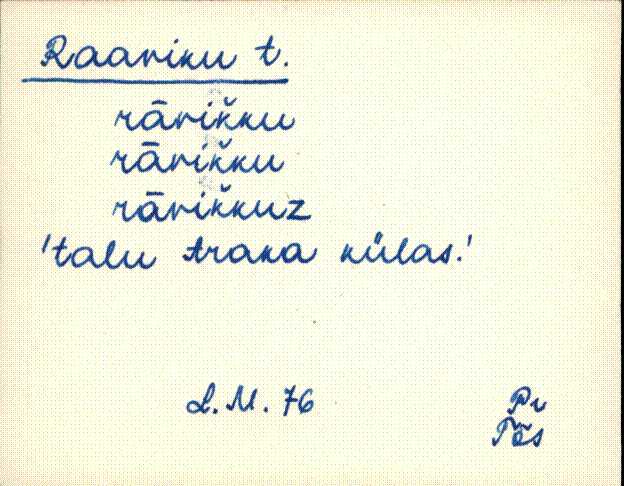 Raariku t.
rārik̆ku
rārik̆ku
rārik̆kuz
'talu Araka külas.'
L. M. 76
Pr
Tõs